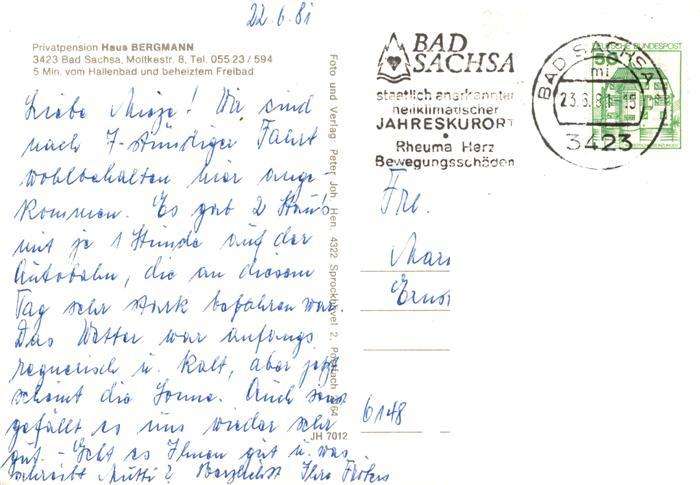 22.6.81
Privatpension Haus BERGMANN
3423 Bad Sachsa, Moltkestr. 8, Tel. 05523/594
5 Min. vom Hallenbad und beheiztem Freibad
Liebe Mieze! Wir sind
nach 7-stündiger Fahrt
wohlbehalten hier ange-
kommen. Es gab 2 Stau's
mit je 1 Stunde auf der
Autobahn, die an diesem
Tag sehr stark befahren war.
Das Wetter war anfangs
regnerisch u. kalt, aber jetzt
scheint die Sonne. Auch sonst
gefällt es uns wieder sehr
gut. - Geht es Ihnen gut u. was
schreibt Mutti? Herzlichst Ihre
Foto und Verlag Peter Joh. Hen. 4322 Sprockhövel 2, Postfach 64
JH 7012
BAD
SACHSA
staatlich anerkannter
heilklimatischer
JAHRESKURORT
Rheuma Herz
Bewegungsschäden
BAD SACHSA
23.6.81-15
3423
DEUTSCHE BUNDESPOST
50
Frl.
Mari
Ernst
6148